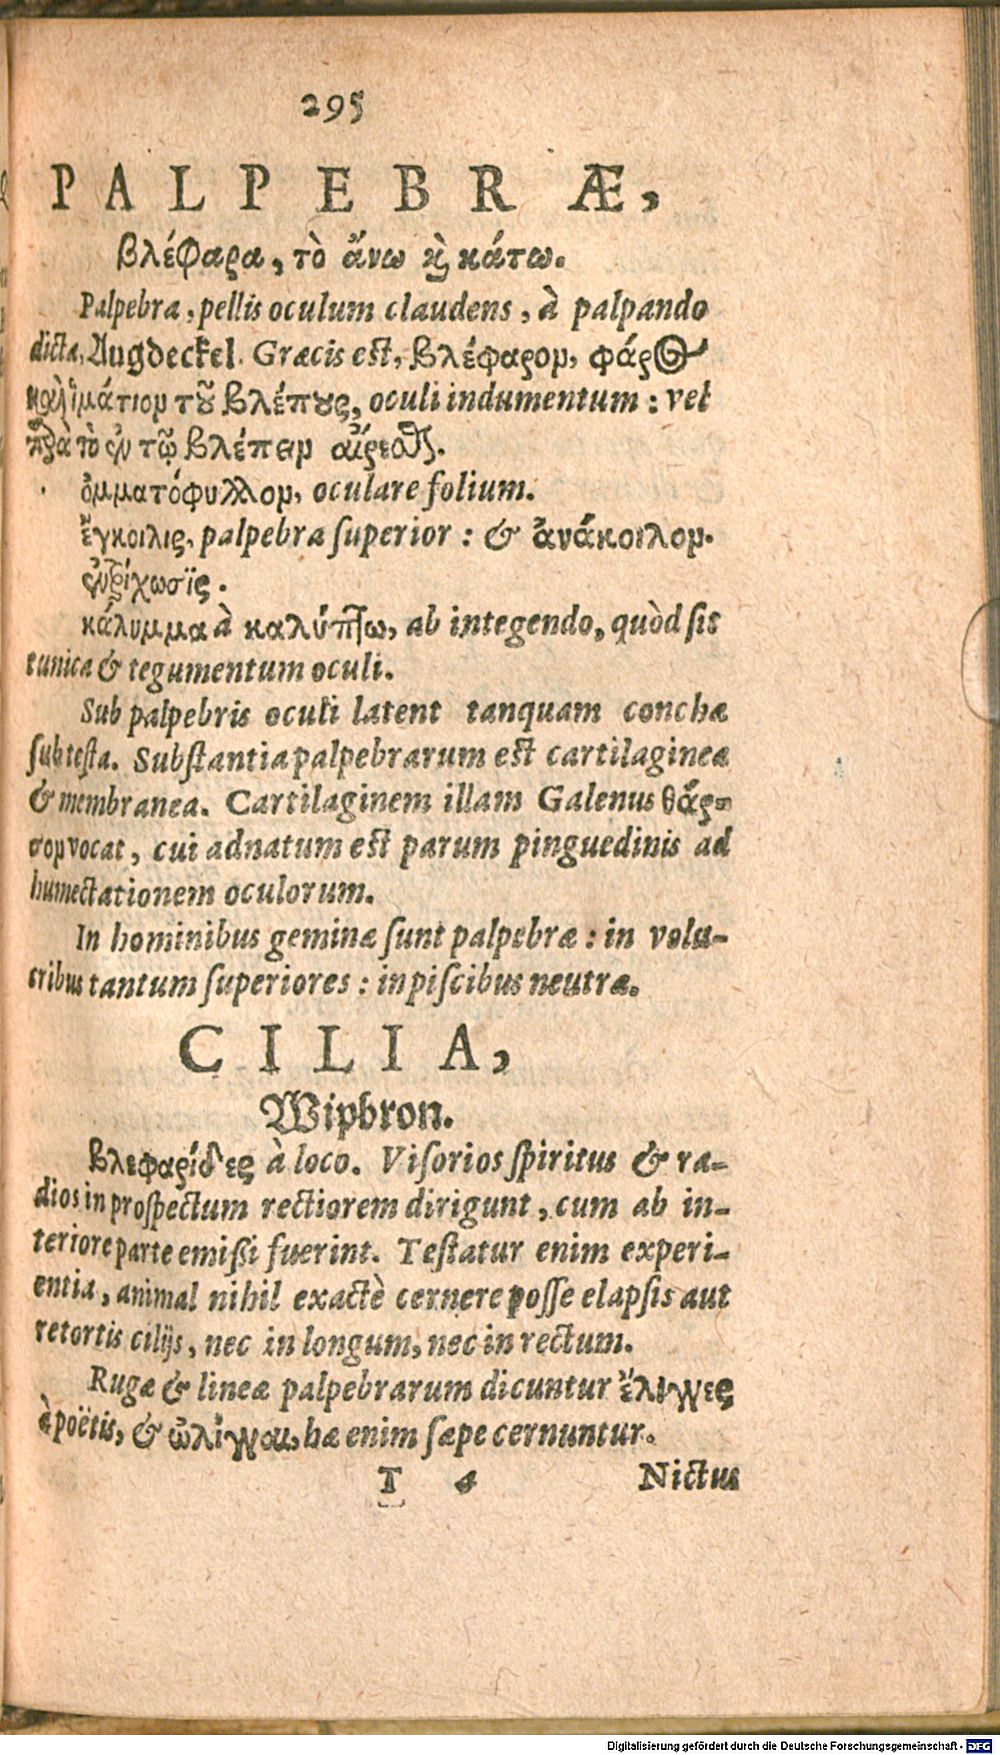 295
PALPEBRÆ,
βλέφαρα, τὸ ἄνω κὶ κάτω.
Palpebra, pellis oculum claudens, à palpando
dicta, Augdeckel. Græcis est, βλέφαρον, φάρος
ἱμάτιον τοῦ βλέπους, oculi indumentum: vel
τὸ ἐν τῷ βλέπειν αἴρεσθαι.
ὀμματόφυλλον, oculare folium.
ἔγκοιλις, palpebra superior: & ἀνάκοιλον.
κάλυμμα à καλύπτω, ab integendo, quòd sit
tunica & tegumentum oculi.
Sub palpebris oculi latent tanquam conchæ
sub testa. Substantia palpebrarum est cartilaginea
& membranea. Cartilaginem illam Galenus θάρ-
σον vocat, cui adnatum est parum pinguedinis ad
humectationem oculorum.
In hominibus geminæ sunt palpebræ: in volu-
cribus tantum superiores: in piscibus neutræ.
CILIA,
Wipbron.
βλεφαρίδες à loco. Visorios spiritus & ra-
dios in prospectum rectiorem dirigunt, cum ab in-
teriore parte emißi fuerint. Testatur enim experi-
entia, animal nihil exactè cernere posse elapsis aut
retortis cilijs, nec in longum, nec in rectum.
Rugæ & lineæ palpebrarum dicuntur ἕλιγγες
à poëtis, & ὠλίγγαι, hæ enim sæpe cernuntur.
T 4 Nictus
Digitalisierung gefördert durch die Deutsche Forschungsgemeinschaft - DFG